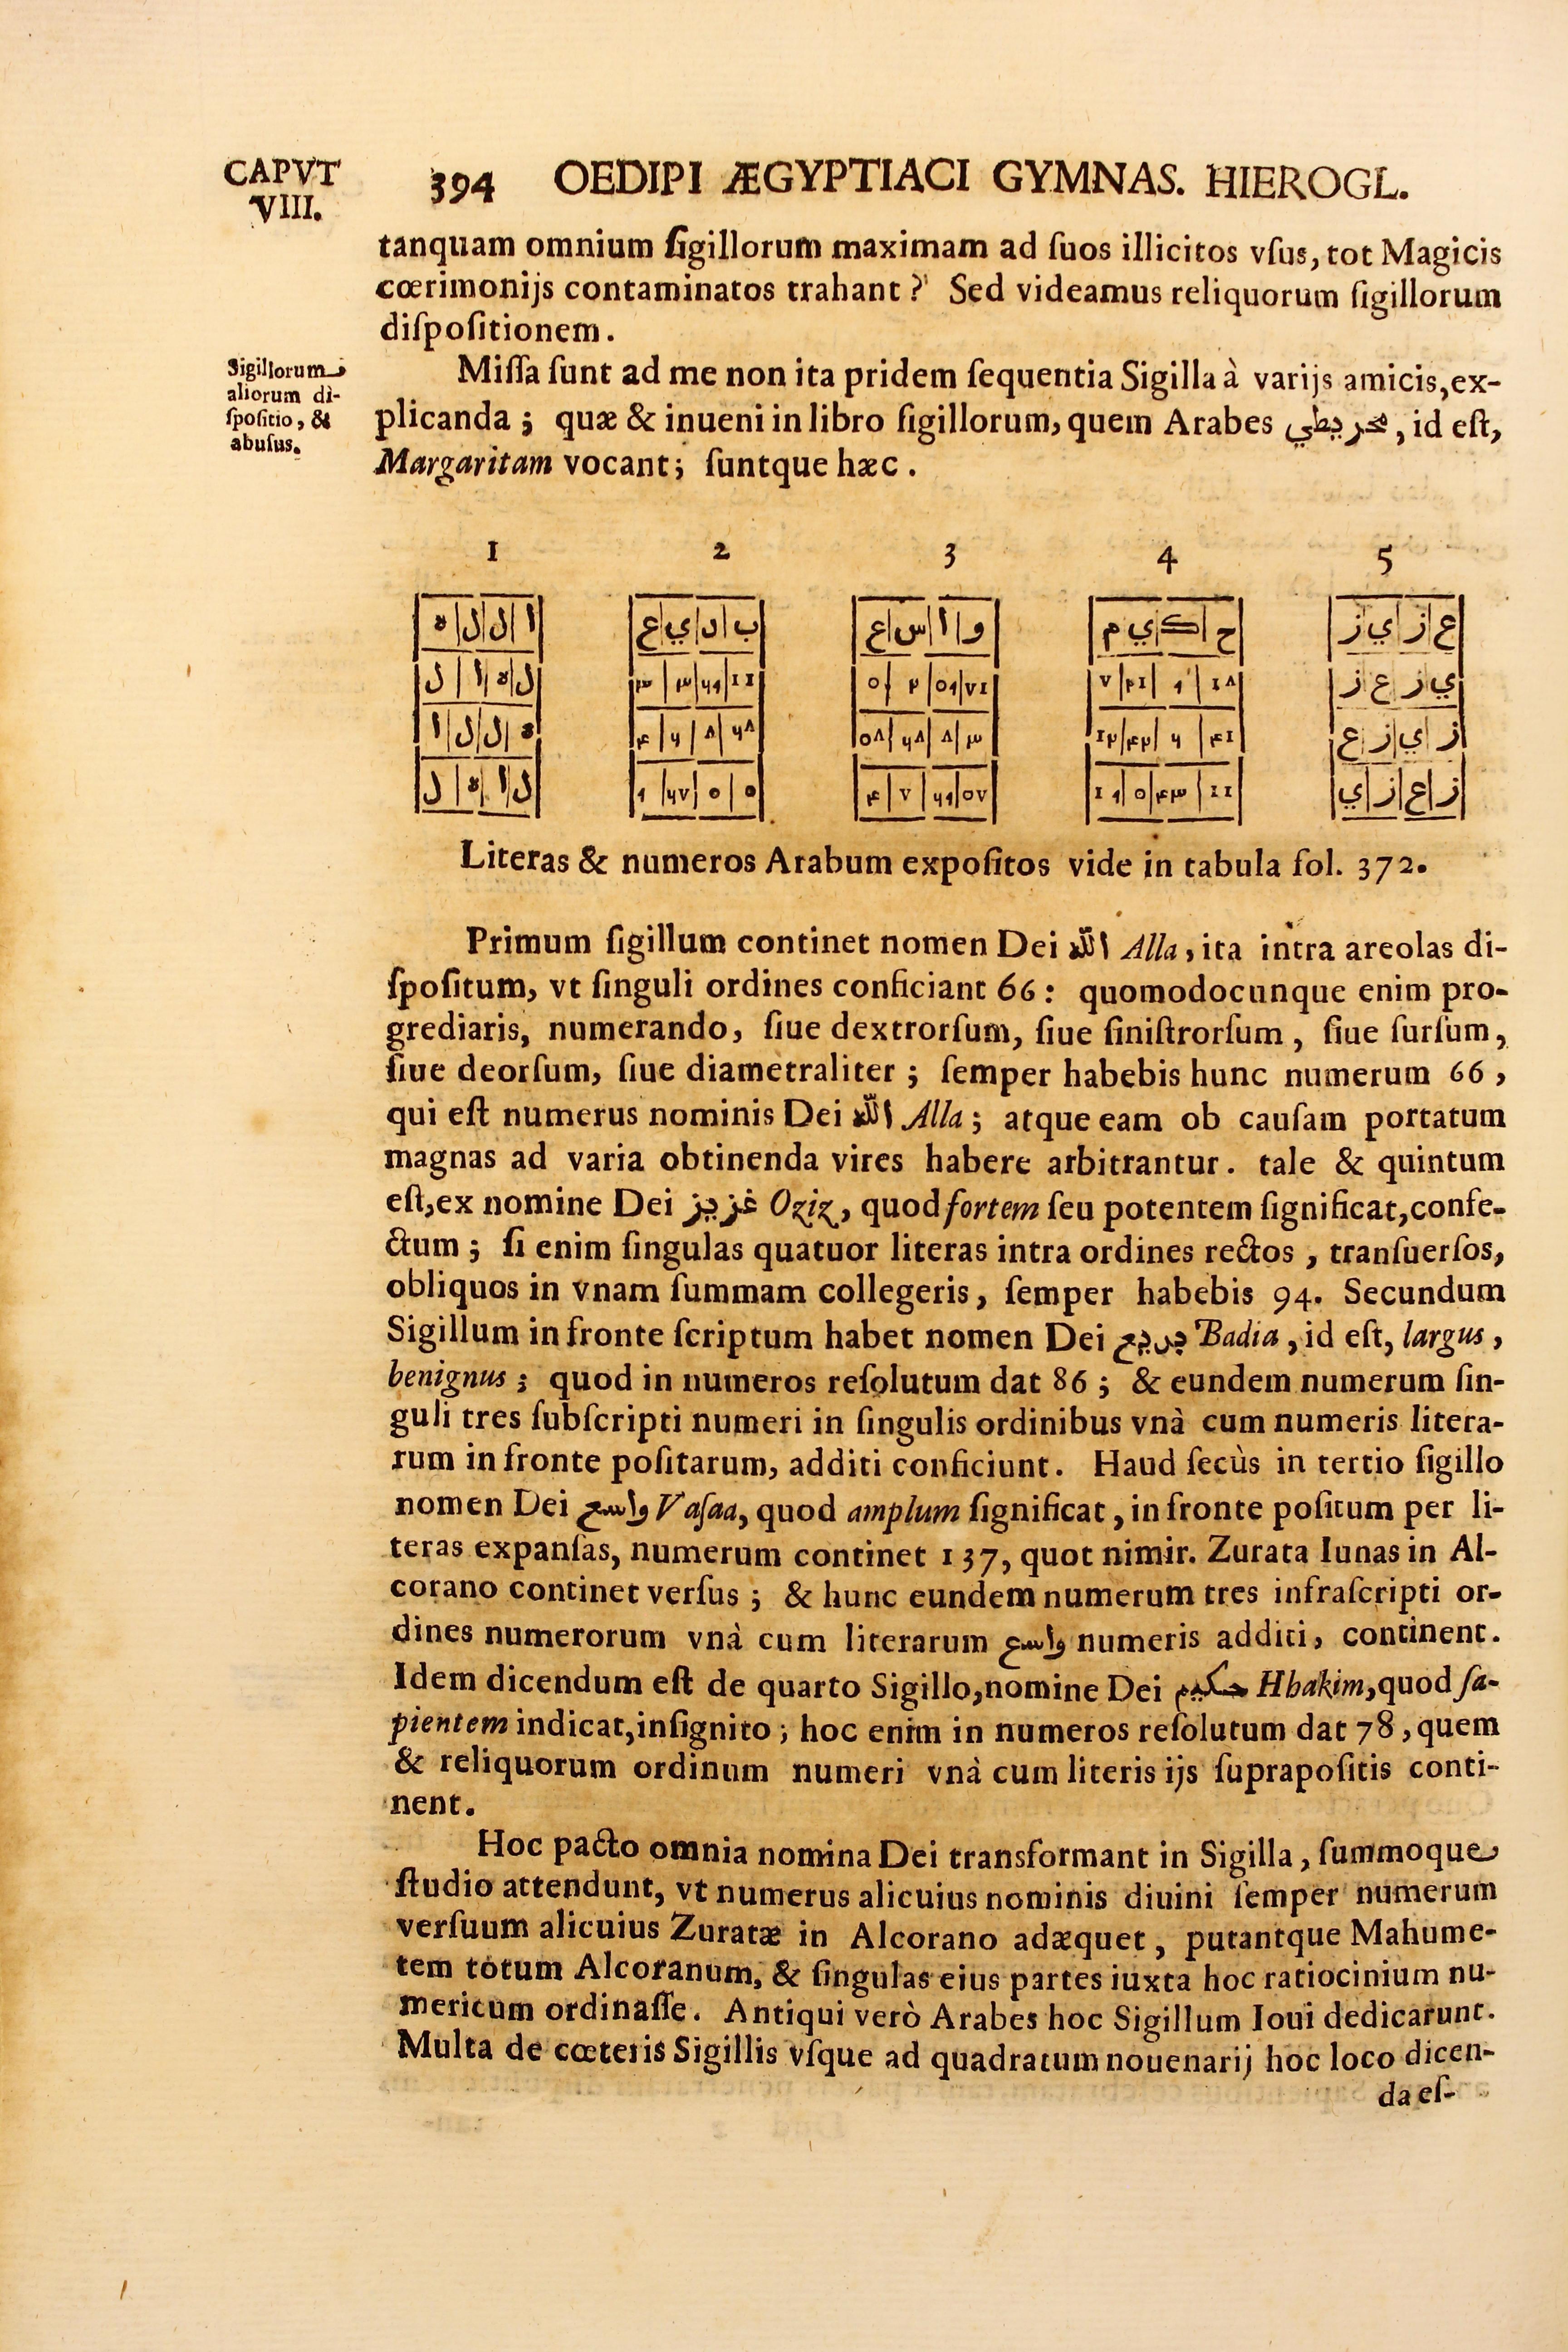 CAPVT
VIII.
394 OEDIPI ÆGYPTIACI GYMNAS. HIEROGL.
tanquam omnium ſigillorum maximam ad ſuos illicitos vſus, tot Magicis
cœrimonijs contaminatos trahant? Sed videamus reliquorum ſigillorum
diſpoſitionem.
Sigillorum
aliorum di-
ſpoſitio, &
abuſus.
Miſſa ſunt ad me non ita pridem ſequentia Sigilla à varijs amicis, ex-
plicanda; quæ & inueni in libro ſigillorum, quem Arabes , id eſt,
Margaritam vocant; ſuntque hæc.
1 2 3 4 5
ا ل ل ه
ل ه ا ل
ه ل ل ا
ل ا ه ل
ب د ي ع
و ا س ع
ح ك ي م
ع ز ي ز
ي ز ع ز
ز ي ز ع
ز ع ز ي
Literas & numeros Arabum expoſitos vide in tabula fol. 372.
Primum ſigillum continet nomen Dei الله Alla, ita intra areolas di-
ſpoſitum, vt ſinguli ordines conficiant 66: quomodocunque enim pro-
grediaris, numerando, ſiue dextrorſum, ſiue ſiniſtrorſum, ſiue ſurſum,
ſiue deorſum, ſiue diametraliter; ſemper habebis hunc numerum 66,
qui eſt numerus nominis Dei الله Alla; atque eam ob cauſam portatum
magnas ad varia obtinenda vires habere arbitrantur. tale & quintum
eſt, ex nomine Dei غزيز Oziz, quod fortem ſeu potentem ſignificat, confe-
ctum; ſi enim ſingulas quatuor literas intra ordines rectos, tranſuerſos,
obliquos in vnam ſummam collegeris, ſemper habebis 94. Secundum
Sigillum in fronte ſcriptum habet nomen Dei Badia, id eſt, largus,
benignus; quod in numeros reſolutum dat 86; & eundem numerum ſin-
guli tres ſubſcripti numeri in ſingulis ordinibus vnà cum numeris litera-
rum in fronte poſitarum, additi conficiunt. Haud ſecùs in tertio ſigillo
nomen Dei واسع Vaſaa, quod amplum ſignificat, in fronte poſitum per li-
teras expanſas, numerum continet 137, quot nimir. Zurata Iunas in Al-
corano continet verſus; & hunc eundem numerum tres infraſcripti or-
dines numerorum vnà cum literarum واسع numeris additi, continent.
Idem dicendum eſt de quarto Sigillo, nomine Dei حكيم Hhakim, quod ſa-
pientem indicat, inſignito; hoc enim in numeros reſolutum dat 78, quem
& reliquorum ordinum numeri vnà cum literis ijs ſuprapoſitis conti-
nent.
Hoc pacto omnia nomina Dei transformant in Sigilla, ſummoque
ſtudio attendunt, vt numerus alicuius nominis diuini ſemper numerum
verſuum alicuius Zuratæ in Alcorano adæquet, putantque Mahume-
tem totum Alcoranum, & ſingulas eius partes iuxta hoc ratiocinium nu-
mericum ordinaſſe. Antiqui verò Arabes hoc Sigillum Ioui dedicarunt.
Multa de cœteris Sigillis vſque ad quadratum nouenarij hoc loco dicen-
da eſ-